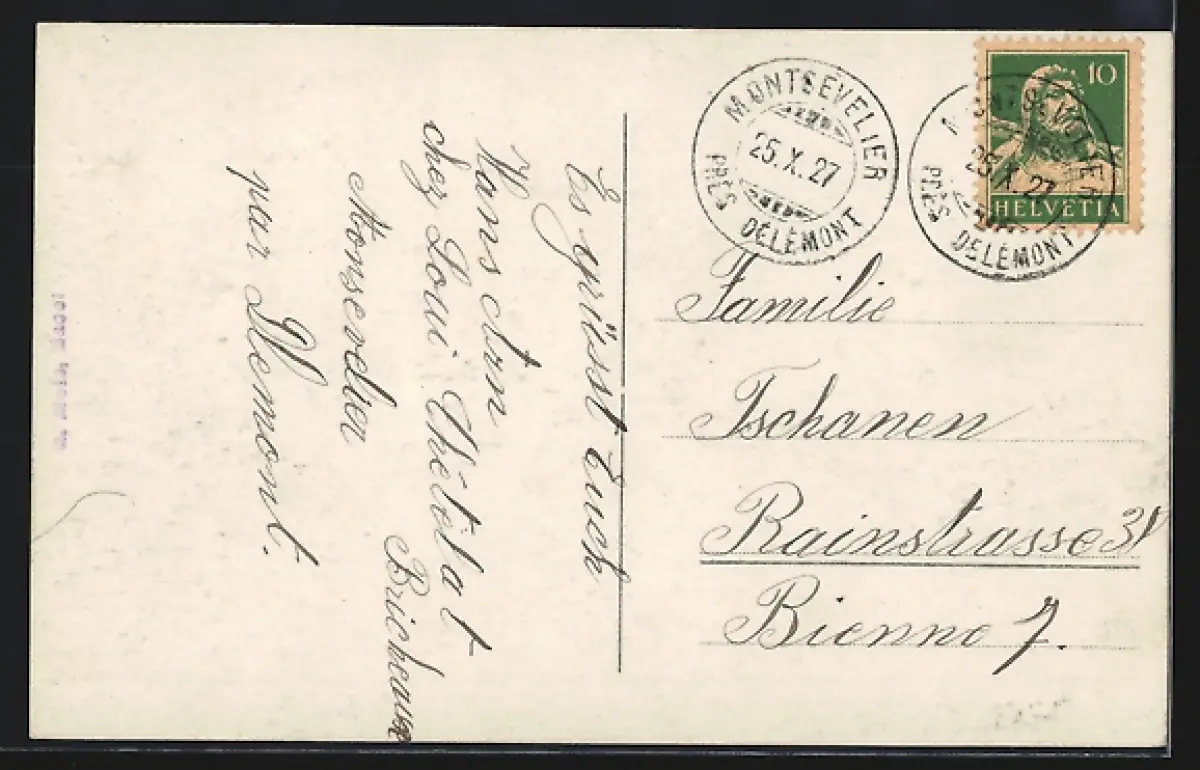 MONTSEVELIER
25.X.27
PRÈS DELÉMONT
MONTSEVELIER
25.X.27
PRÈS DELÉMONT
10
HELVETIA
Familie
Tschanen
Rainstrasse
Bienne 7.
Es grüsst Euch
Hans
chez Loui Chételat
Monsevelier
par Delemont.